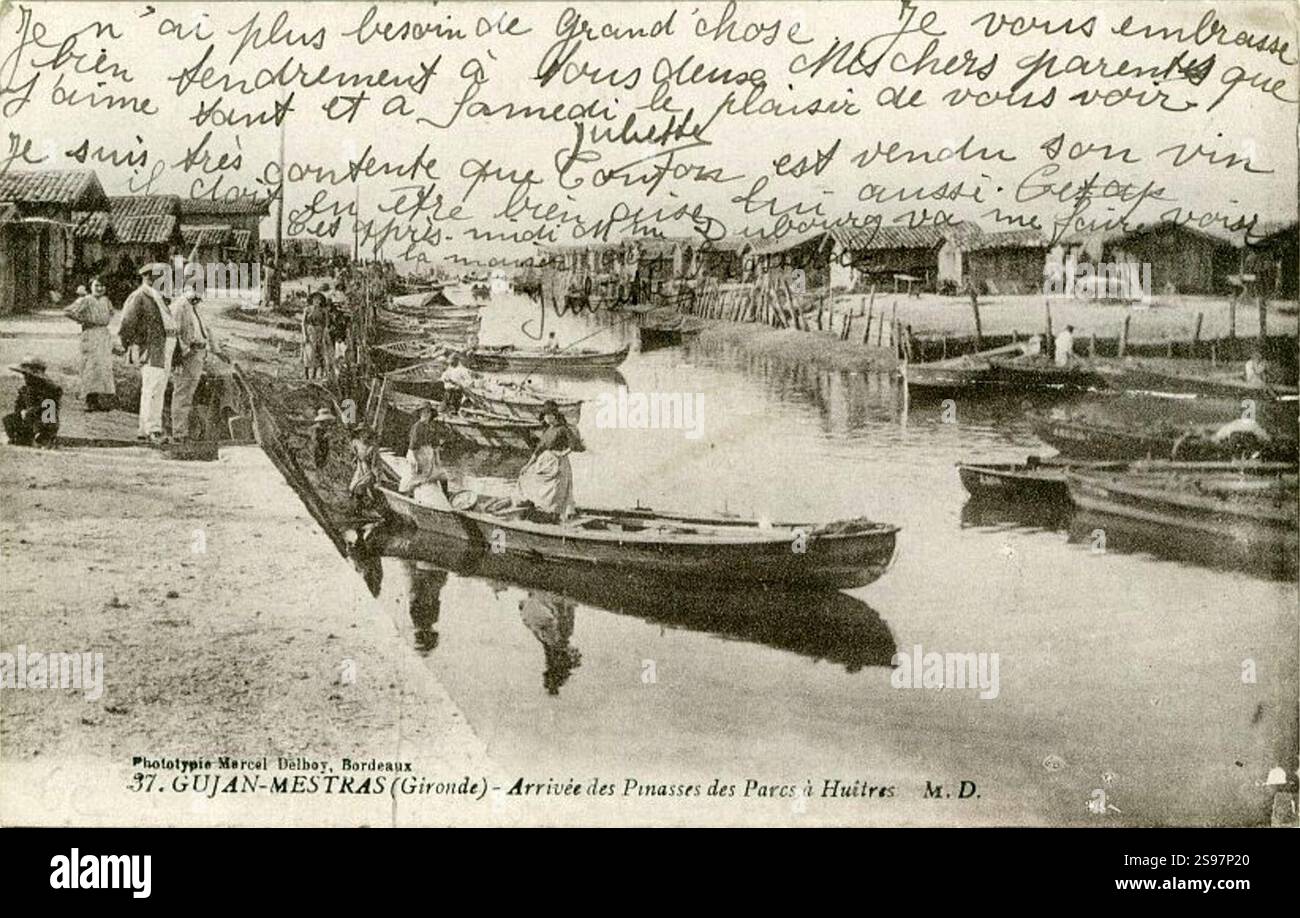 Je n'ai plus besoin de grand'chose. Je vous embrasse
bien tendrement à tous deux Mes chers parents que
J'aime tant et à Samedi le plaisir de vous voir
Juliette
Je suis très contente que Tonton est vendu son vin
il doit en être bien aise lui aussi. Cet ap
Cet après-midi Mme Dubourg va me faire voir
la maison
Juliette
Phototypie Marcel Delboy, Bordeaux
37. GUJAN-MESTRAS (Gironde) - Arrivée des Pinasses des Parcs à Huîtres M. D.
alamy
alamy
Image ID: 2S97P20
www.alamy.com